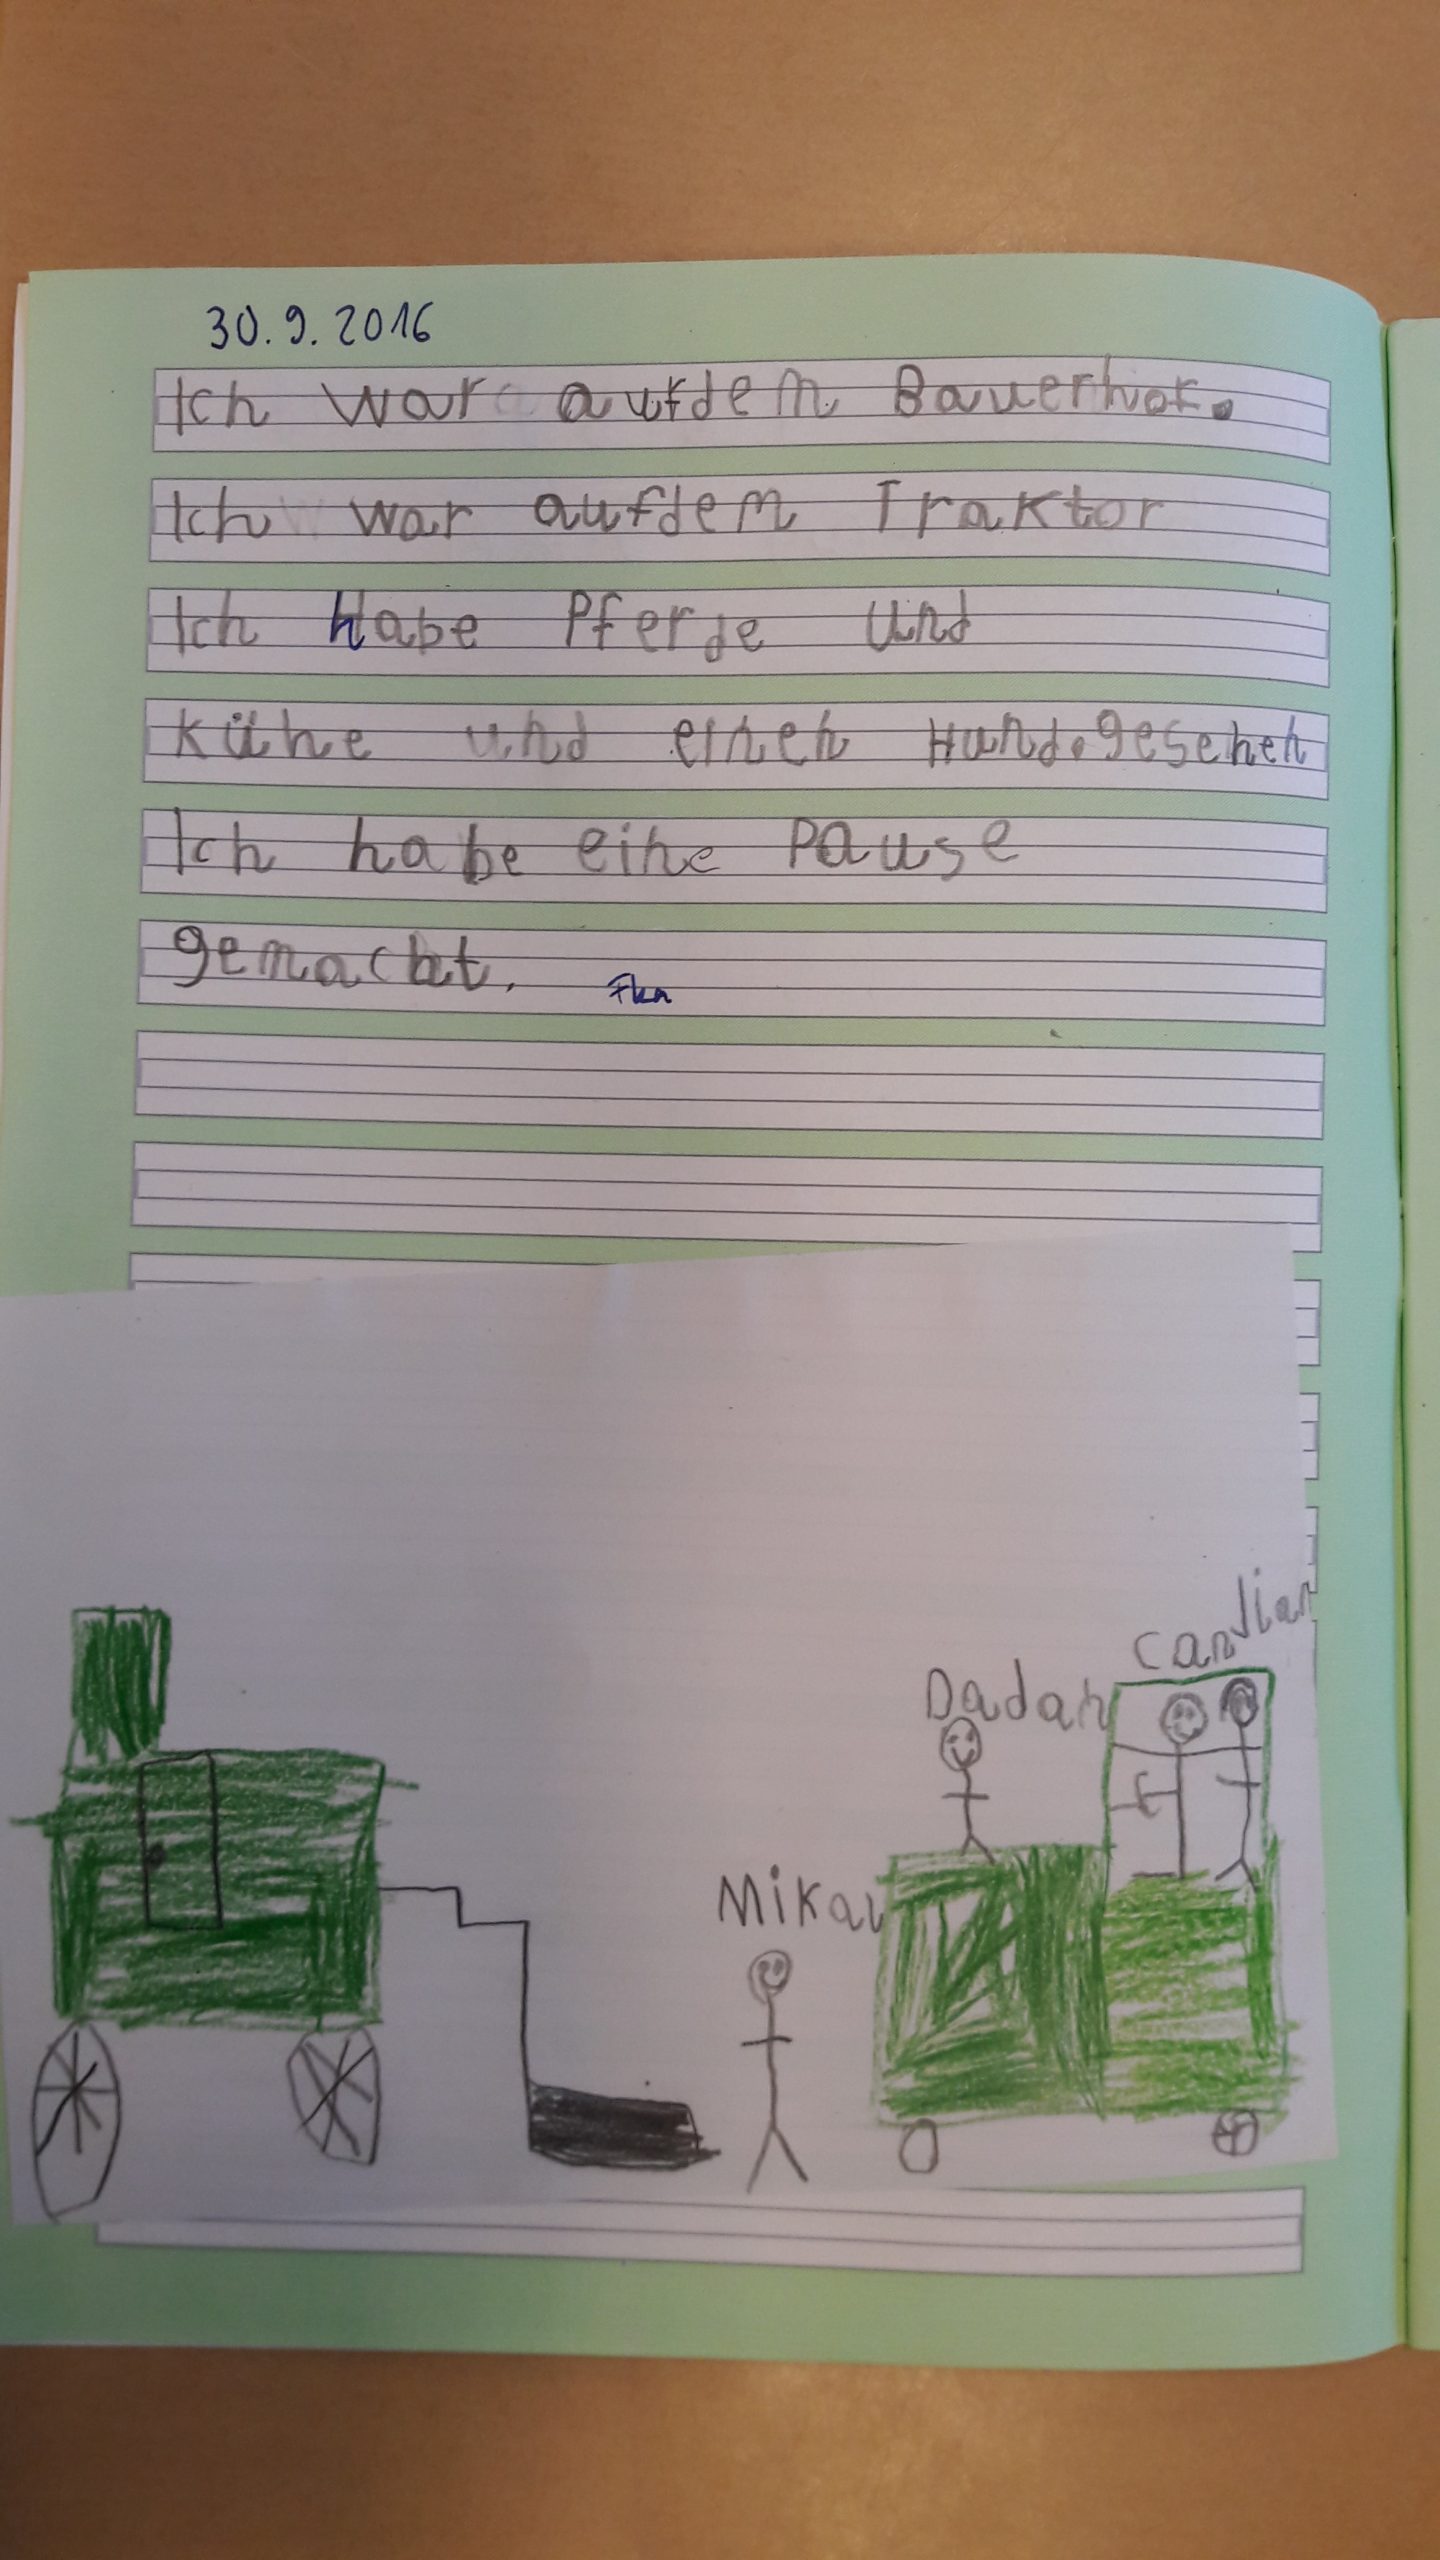 30.9.2016
Ich war aufdem Bauerhof.
Ich war aufdem Traktor
Ich habe Pferde und
Kühe und einen Hund.gesehen
Ich habe eine Pause
gemacht.
Dadan
Can
Mika